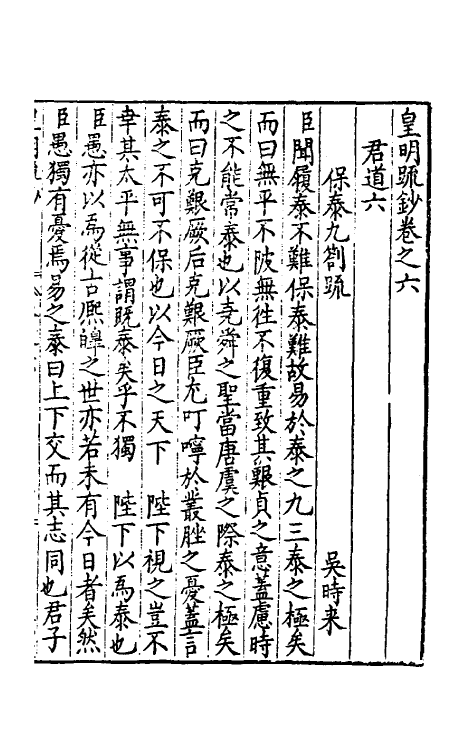 皇明疏鈔卷之六
君道六
保泰九劄疏 吳時来
臣聞履泰不難保泰難故易於泰之九三泰之極矣
而曰無平不陂無徃不復重致其艱貞之意蓋慮時
之不能常泰也以堯舜之聖當唐虞之際泰之極矣
而曰克艱厥后克艱厥臣尤叮嚀於叢脞之憂蓋言
泰之不可不保也以今日之天下 陛下視之豈不
幸其太平無事謂既泰矣乎不獨 陛下以爲泰也
臣愚亦以爲從古熈皥之世亦若未有今日者矣然
臣愚獨有憂焉易之泰曰上下交而其志同也君子